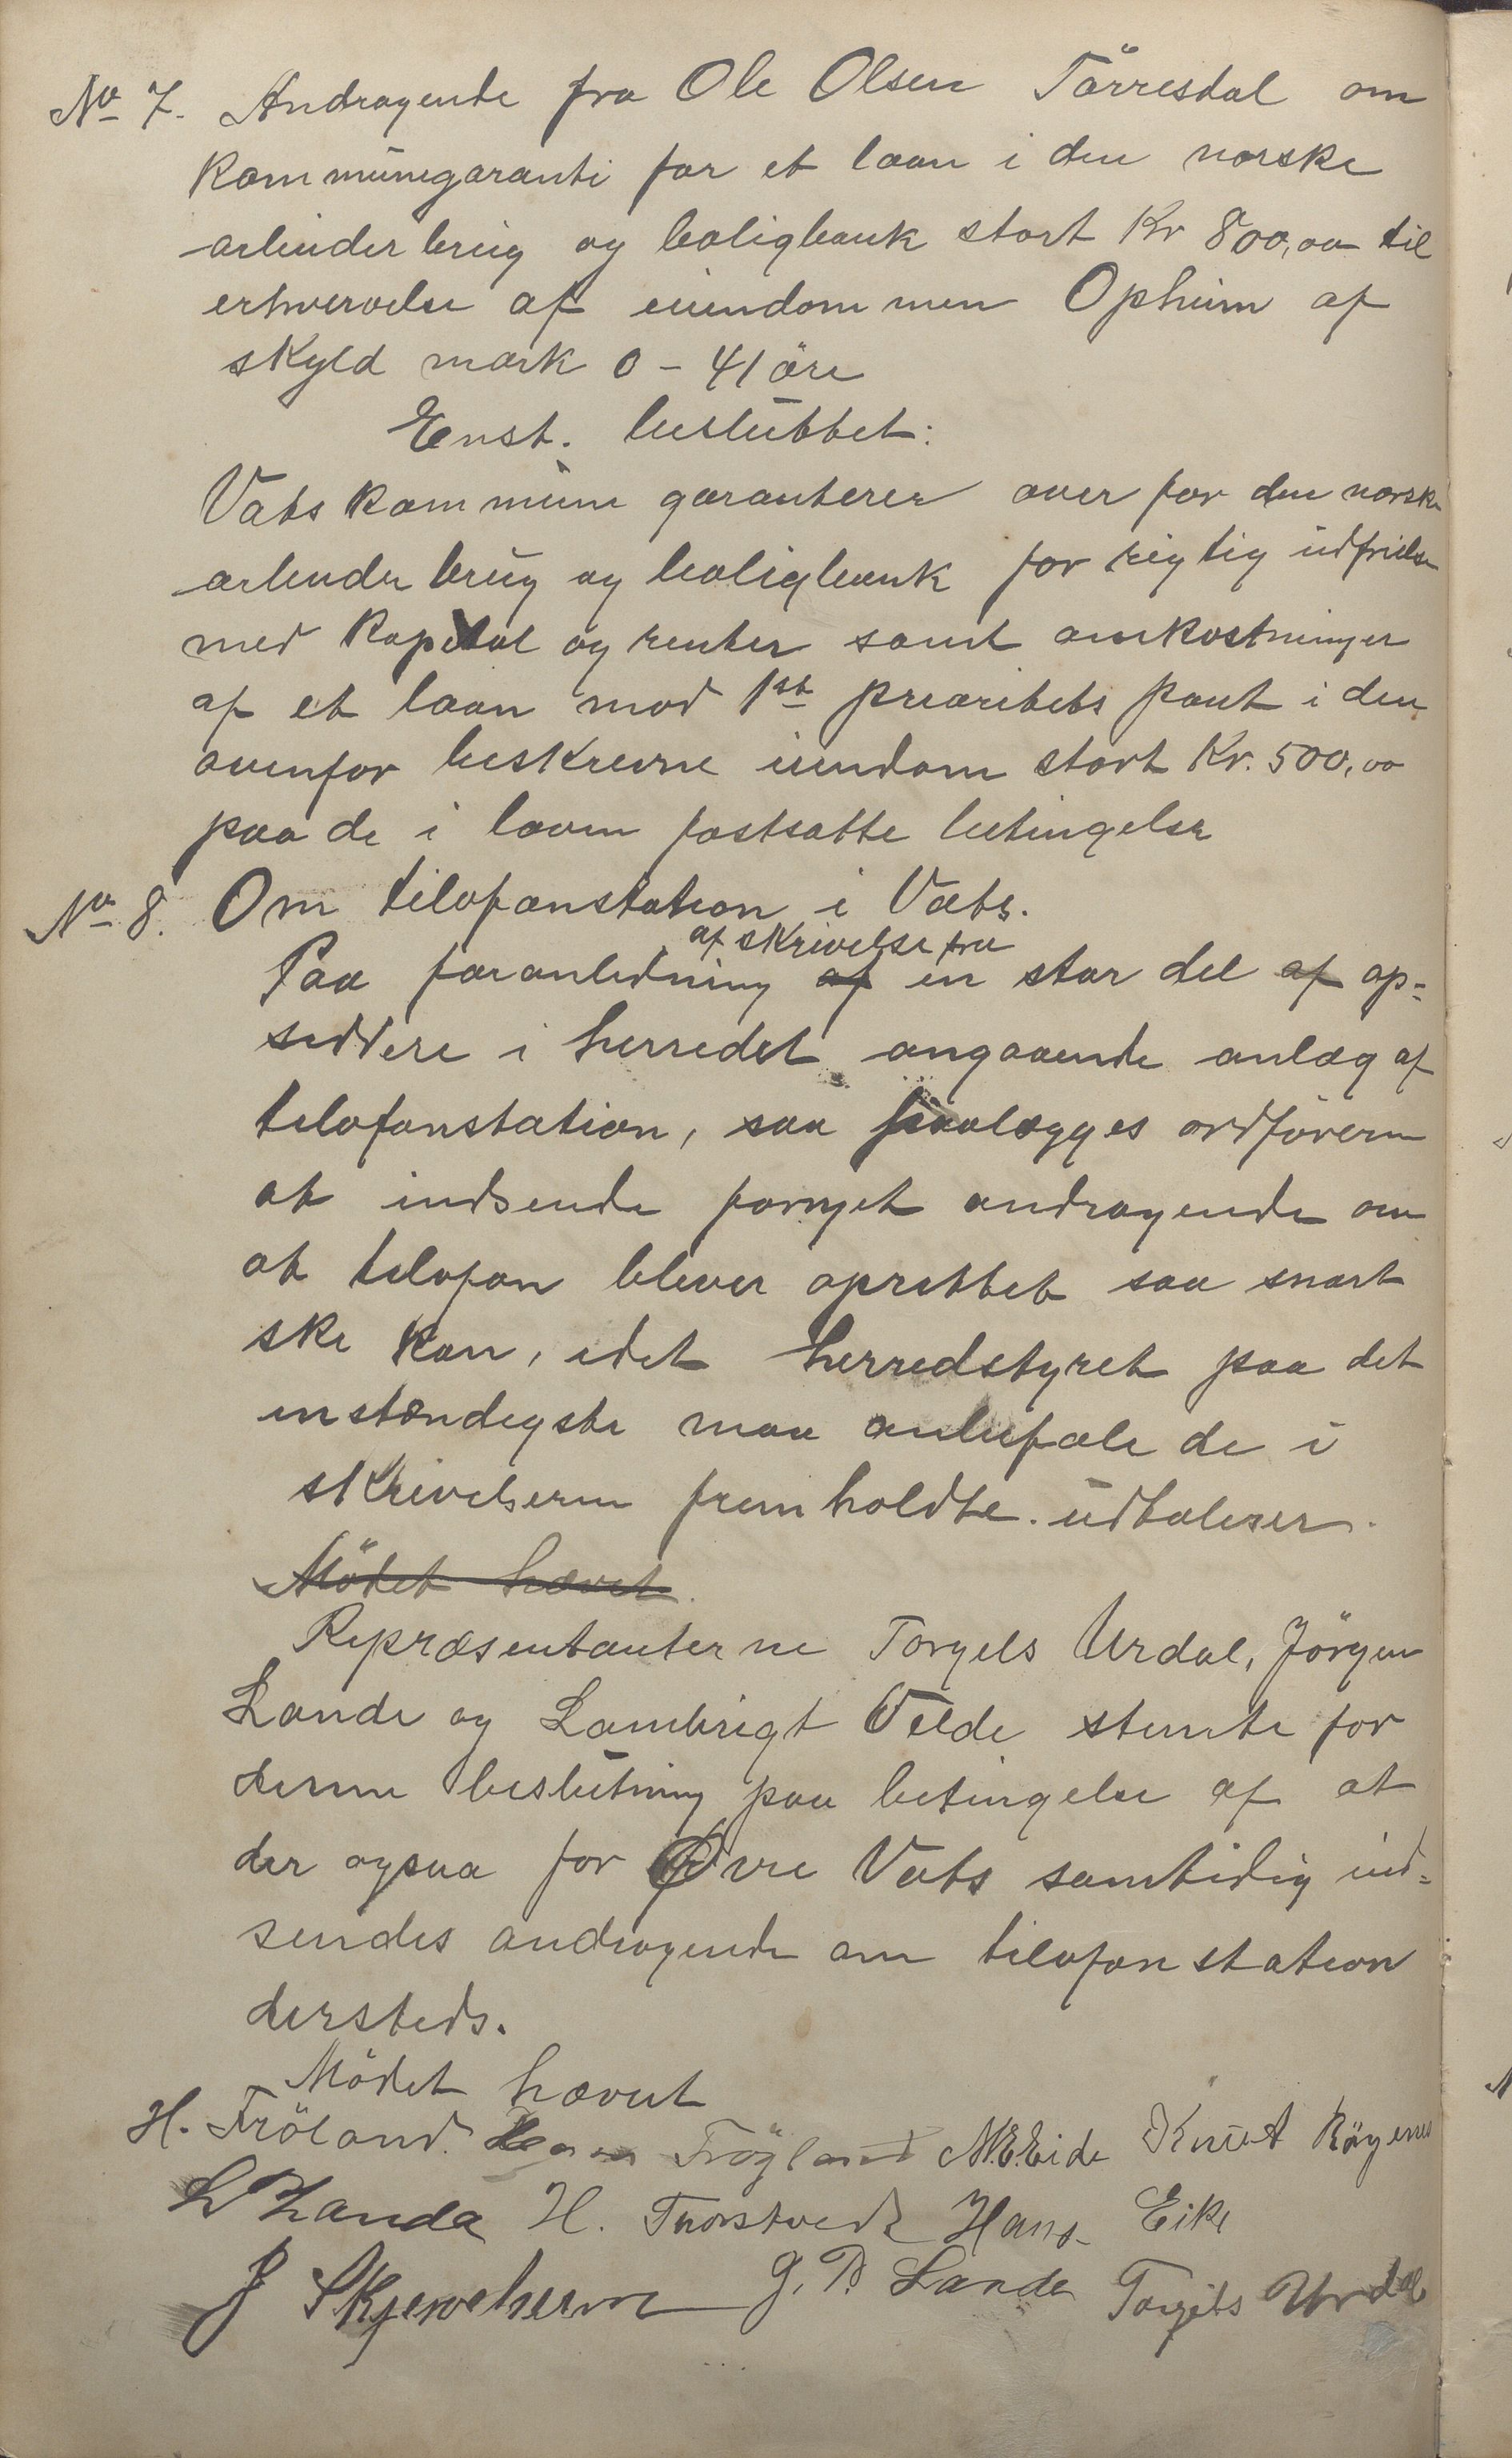 No 7. Andragende fra Ole Olsen Törresdal om
kommunegaranti for et laan i den norske
arbeiderbrug og boligbank stort Kr 800,00 til
erhvervelse af eiendommen Opheim af
skyld mark 0 - 41 öre
Enst. besluttet:
Vats kommune garanterer over for den norske
arbeider brug og boligbank for rigtig udfrielse
med kapital og renter samt omkostninger
af et laan mod 1st prioritets pant i den
ovenfor beskrevne eiendom stort Kr. 500,00
paa de i loven fastsatte betingelser
No 8. Om telefonstation i Vats.
af skrivelse fra
Paa foranledning af en stor del af op=
siddere i herredet angaaende anlæg af
telefonstation, saa paalægges ordföreren
at indsende fornyet andragende om
at telefon blever oprettet saa snart
ske kan, idet herredstyret paa det
instændigste maa anbefale de i
skrivelsern fremholdte udtaleser.
Mödet hævet.
Repræsentanterne Torgels Urdal, Jörgen
Lande og Lambrigt Velde stemte for
denne beslutning paa betingelse af at
der ogsaa for Øvre Vats samtidig ind=
sendes andragende om telefonstation
dersteds.
Mödet hævet
H. Fröland. Hans Frögland N.E.Eide Knut Røgenes
L Landa H. Thorstvedt Hans Eike
J Skjeveheim G. T. Lande Torgils Urdal